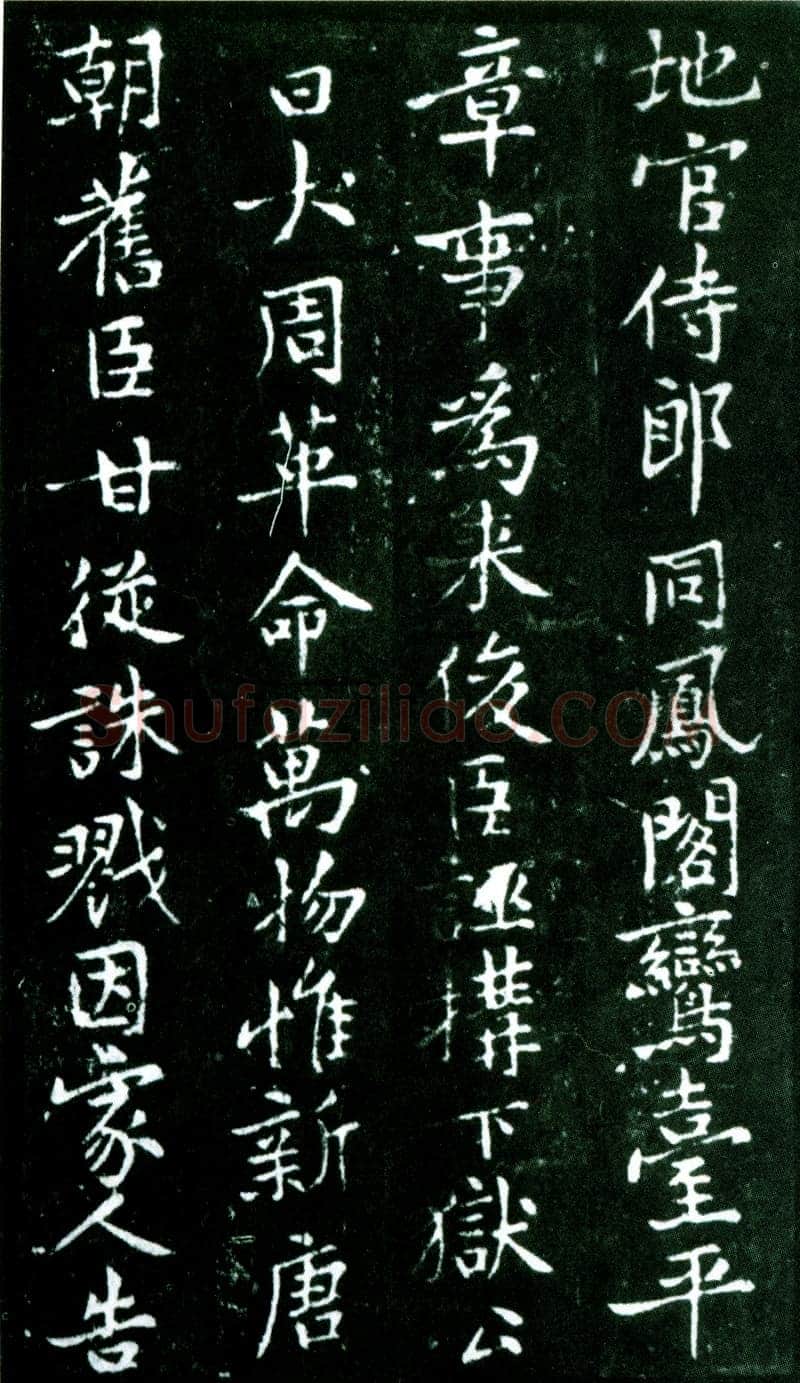 地官侍郎同鳳閣鸞臺平
章事為来俊臣誣搆下獄公
曰大周革命萬物惟新唐
朝舊臣甘從誅戮因家人告
Shufaziliao.com